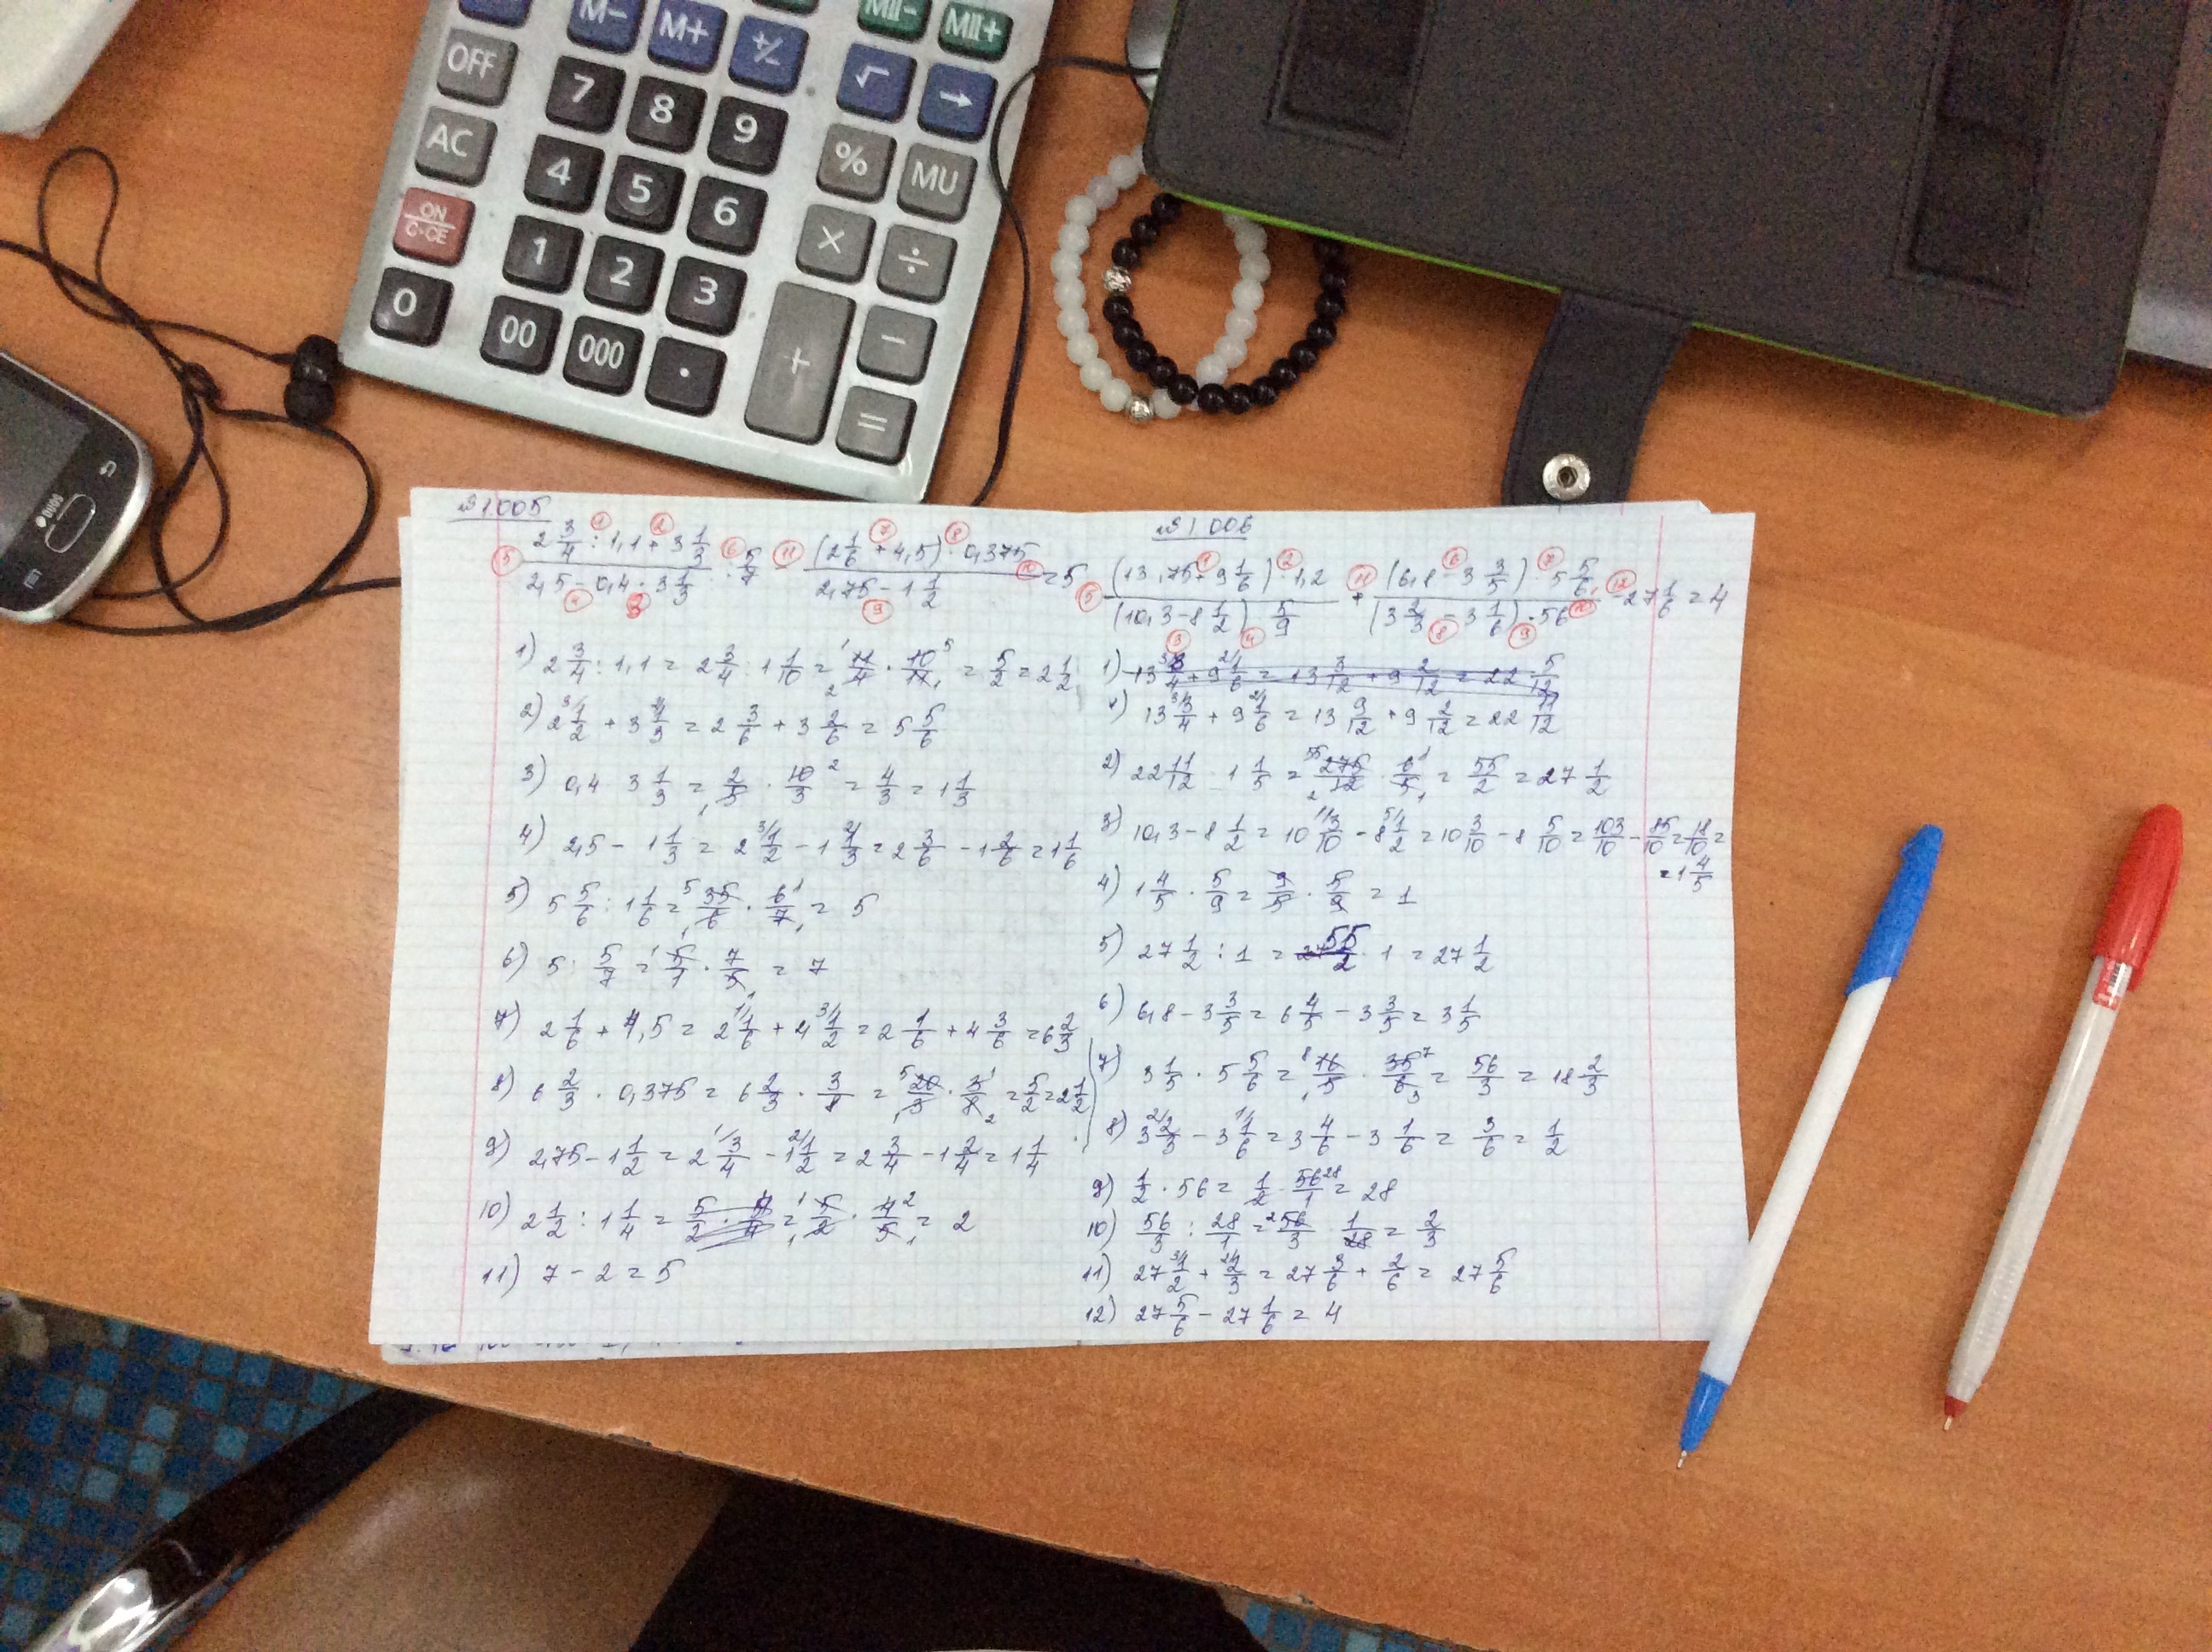 M- M+ +/- MII- MII+
OFF 7 8 9 √ →
AC 4 5 6 % MU
ON/C·CE 1 2 3 × ÷
0 00 000 · + - =
№1.005
(2 3/4 : 1,1 + 3 1/3)/(2,5 - 0,4 · 3 1/3) : 5/7 - ((2 1/6 + 4,5) · 0,375)/(2,75 - 1 1/2) = 5
1) 2 3/4 : 1,1 = 2 3/4 : 1 1/10 = 11/4 · 10/11 = 5/2 = 2 1/2
2) 2 1/2 + 3 1/3 = 2 3/6 + 3 2/6 = 5 5/6
3) 0,4 · 3 1/3 = 2/5 · 10/3 = 4/3 = 1 1/3
4) 2,5 - 1 1/3 = 2 1/2 - 1 1/3 = 2 3/6 - 1 2/6 = 1 1/6
5) 5 5/6 : 1 1/6 = 35/6 · 6/7 = 5
6) 5 : 5/7 = 5/1 · 7/5 = 7
7) 2 1/6 + 4,5 = 2 1/6 + 4 1/2 = 2 1/6 + 4 3/6 = 6 2/3
8) 6 2/3 · 0,375 = 6 2/3 · 3/8 = 20/3 · 3/8 = 5/2 = 2 1/2
9) 2,75 - 1 1/2 = 2 3/4 - 1 1/2 = 2 3/4 - 1 2/4 = 1 1/4
10) 2 1/2 : 1 1/4 = 5/2 · 4/5 = 2
11) 7 - 2 = 5
№1.006
((13,75 + 9 1/6) · 1,2)/((10,3 - 8 1/2) · 5/9) + ((6,8 - 3 3/5) · 5 5/6)/((3 2/3 - 3 1/6) · 56) - 27 1/6 = 4
1) 13 3/4 + 9 1/6 = 13 3/12 + 9 2/12 = 22 5/12
1) 13 3/4 + 9 1/6 = 13 9/12 + 9 2/12 = 22 11/12
2) 22 11/12 · 1 1/5 = 275/12 · 6/5 = 55/2 = 27 1/2
3) 10,3 - 8 1/2 = 10 3/10 - 8 1/2 = 10 3/10 - 8 5/10 = 103/10 - 85/10 = 18/10 =
= 1 4/5
4) 1 4/5 · 5/9 = 9/5 · 5/9 = 1
5) 27 1/2 : 1 = 55/2 · 1 = 27 1/2
6) 6,8 - 3 3/5 = 6 4/5 - 3 3/5 = 3 1/5
7) 3 1/5 · 5 5/6 = 16/5 · 35/6 = 56/3 = 18 2/3
8) 3 2/3 - 3 1/6 = 3 4/6 - 3 1/6 = 3/6 = 1/2
9) 1/2 · 56 = 1/2 · 56/1 = 28
10) 56/3 : 28/1 = 56/3 · 1/28 = 2/3
11) 27 1/2 + 2/3 = 27 3/6 + 2/6 = 27 5/6
12) 27 5/6 - 27 1/6 = 4